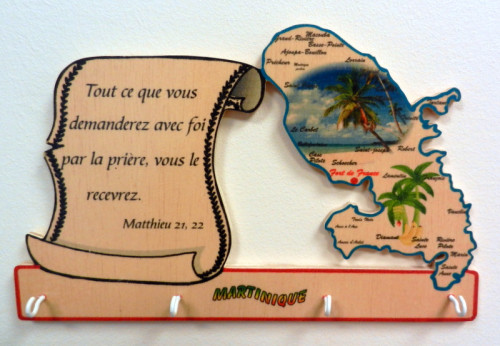 Tout ce que vous
demanderez avec foi
par la prière, vous le
recevrez.
Matthieu 21, 22
Grand-Rivière
Macouba
Basse-Pointe
Ajoupa-Bouillon
Lorrain
Prêcheur
Le Carbet
Saint-Joseph
Robert
Case
Pilote
Schoelcher
Fort de France
Lamentin
Trois Ilets
Anse à l'Ane
Anses d'Arlet
Diamant
Sainte
Luce
Rivière
Pilote
Marin
Sainte
Anne
MARTINIQUE